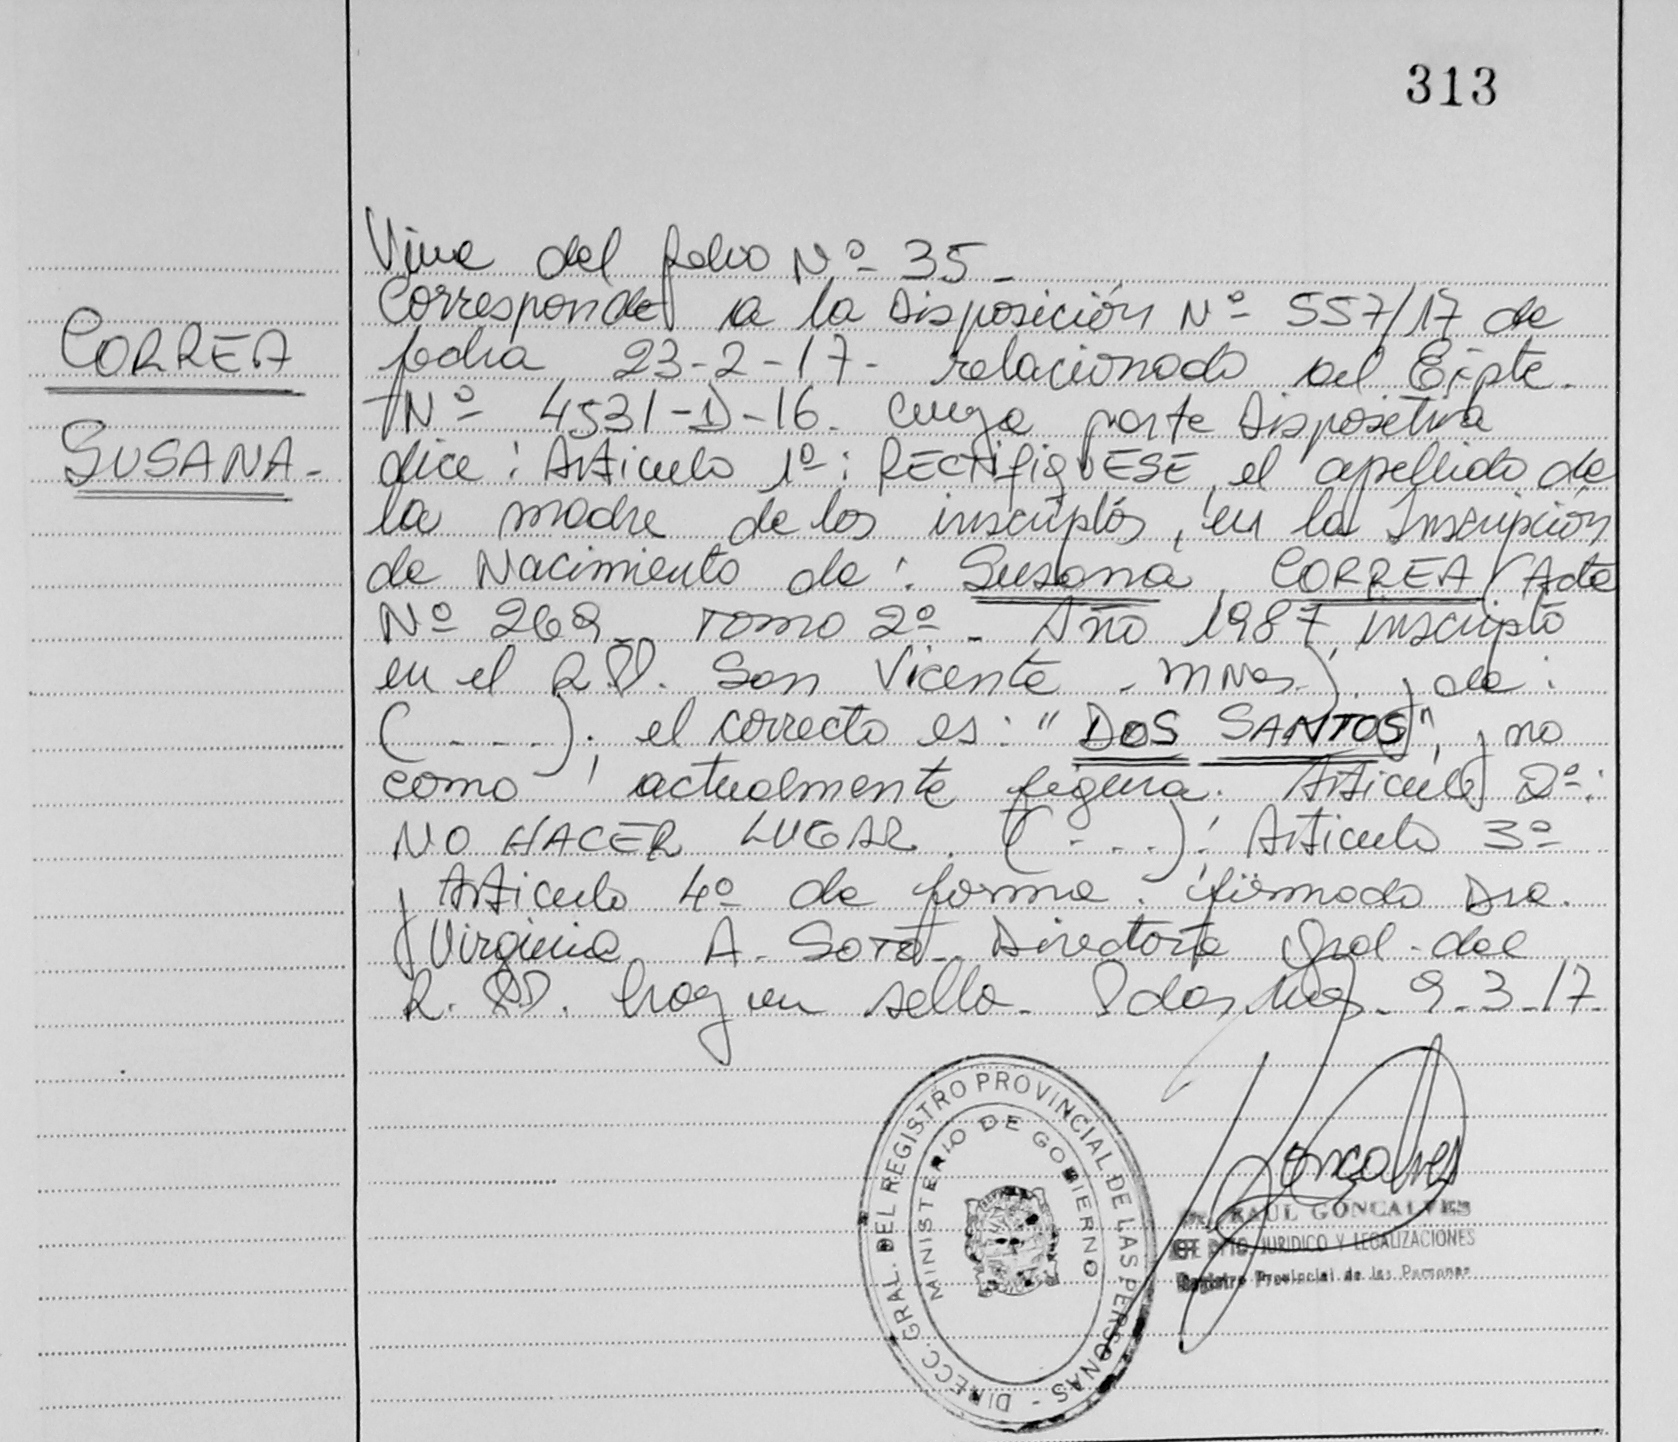 313
CORREA
SUSANA-
Viene del folio Nº 35-
Corresponde a la Disposición Nº 557/17 de
fecha 23-2-17- relacionado al Expte.
Nº 4531-D-16. cuya parte Dispositiva
dice: Articulo 1º: RECTIFIQUESE, el apellido de
la madre de los inscriptos, en la Inscripción
de Nacimiento de: Susana CORREA, Acta
Nº 269- Tomo 2º- Año 1987, inscripto
en el R.PP. San Vicente - Mnes.) y de:
(- - - -); el correcto es: "DOS SANTOS", y no
como actualmente figura. Articulo 2º:
NO HACER LUGAR. (- - - -); Articulo 3º
y Articulo 4º de forma. firmado Dra.
Virginia A. Soto- Directora Gral. del
R. PP. hay un sello- Pdas, Mnes- 9-3-17.
DIRECC. GRAL. DEL REGISTRO PROVINCIAL DE LAS PERSONAS -
MINISTERIO DE GOBIERNO
Goncalves
RAUL GONCALVES
DPTO. JURIDICO Y LEGALIZACIONES
Registro Provincial de las Personas